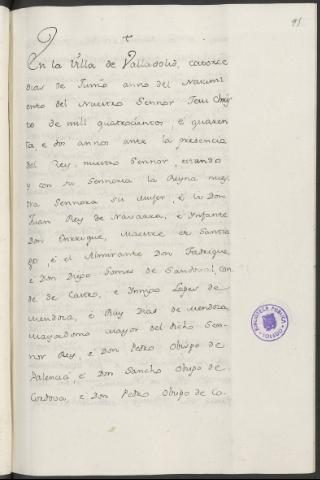 91
En la Villa de Valladolid, catorce
dias de Junio anno del Nacimi
ento del Nuestro Sennor Jesu Chris
to de mil quatrocientos é quaren
ta e dos annos ante la presencia
del Rey nuestro Sennor, estando
y con su Sennoria la Reyna nues
tra Sennora su muger, é la Don
Juan Rey de Navarra, é Ynfante
Don Enrrique, Maestre de Santia
go, é el Almirante Don Fadrique,
e Don Diego Gomes de Sandoval, con
de de Castro, e Ynnigo Lopes de
Mendoza, é Ruy Dias de Mendoza
Mayordomo mayor del dicho Sen-
nor Rey, e Don Pedro Obispo de
Palencia, é Don Sancho Obispo de
Cordova, e Don Pedro Obispo de Co-
BIBLIOTECA PUBLICA
TOLEDO